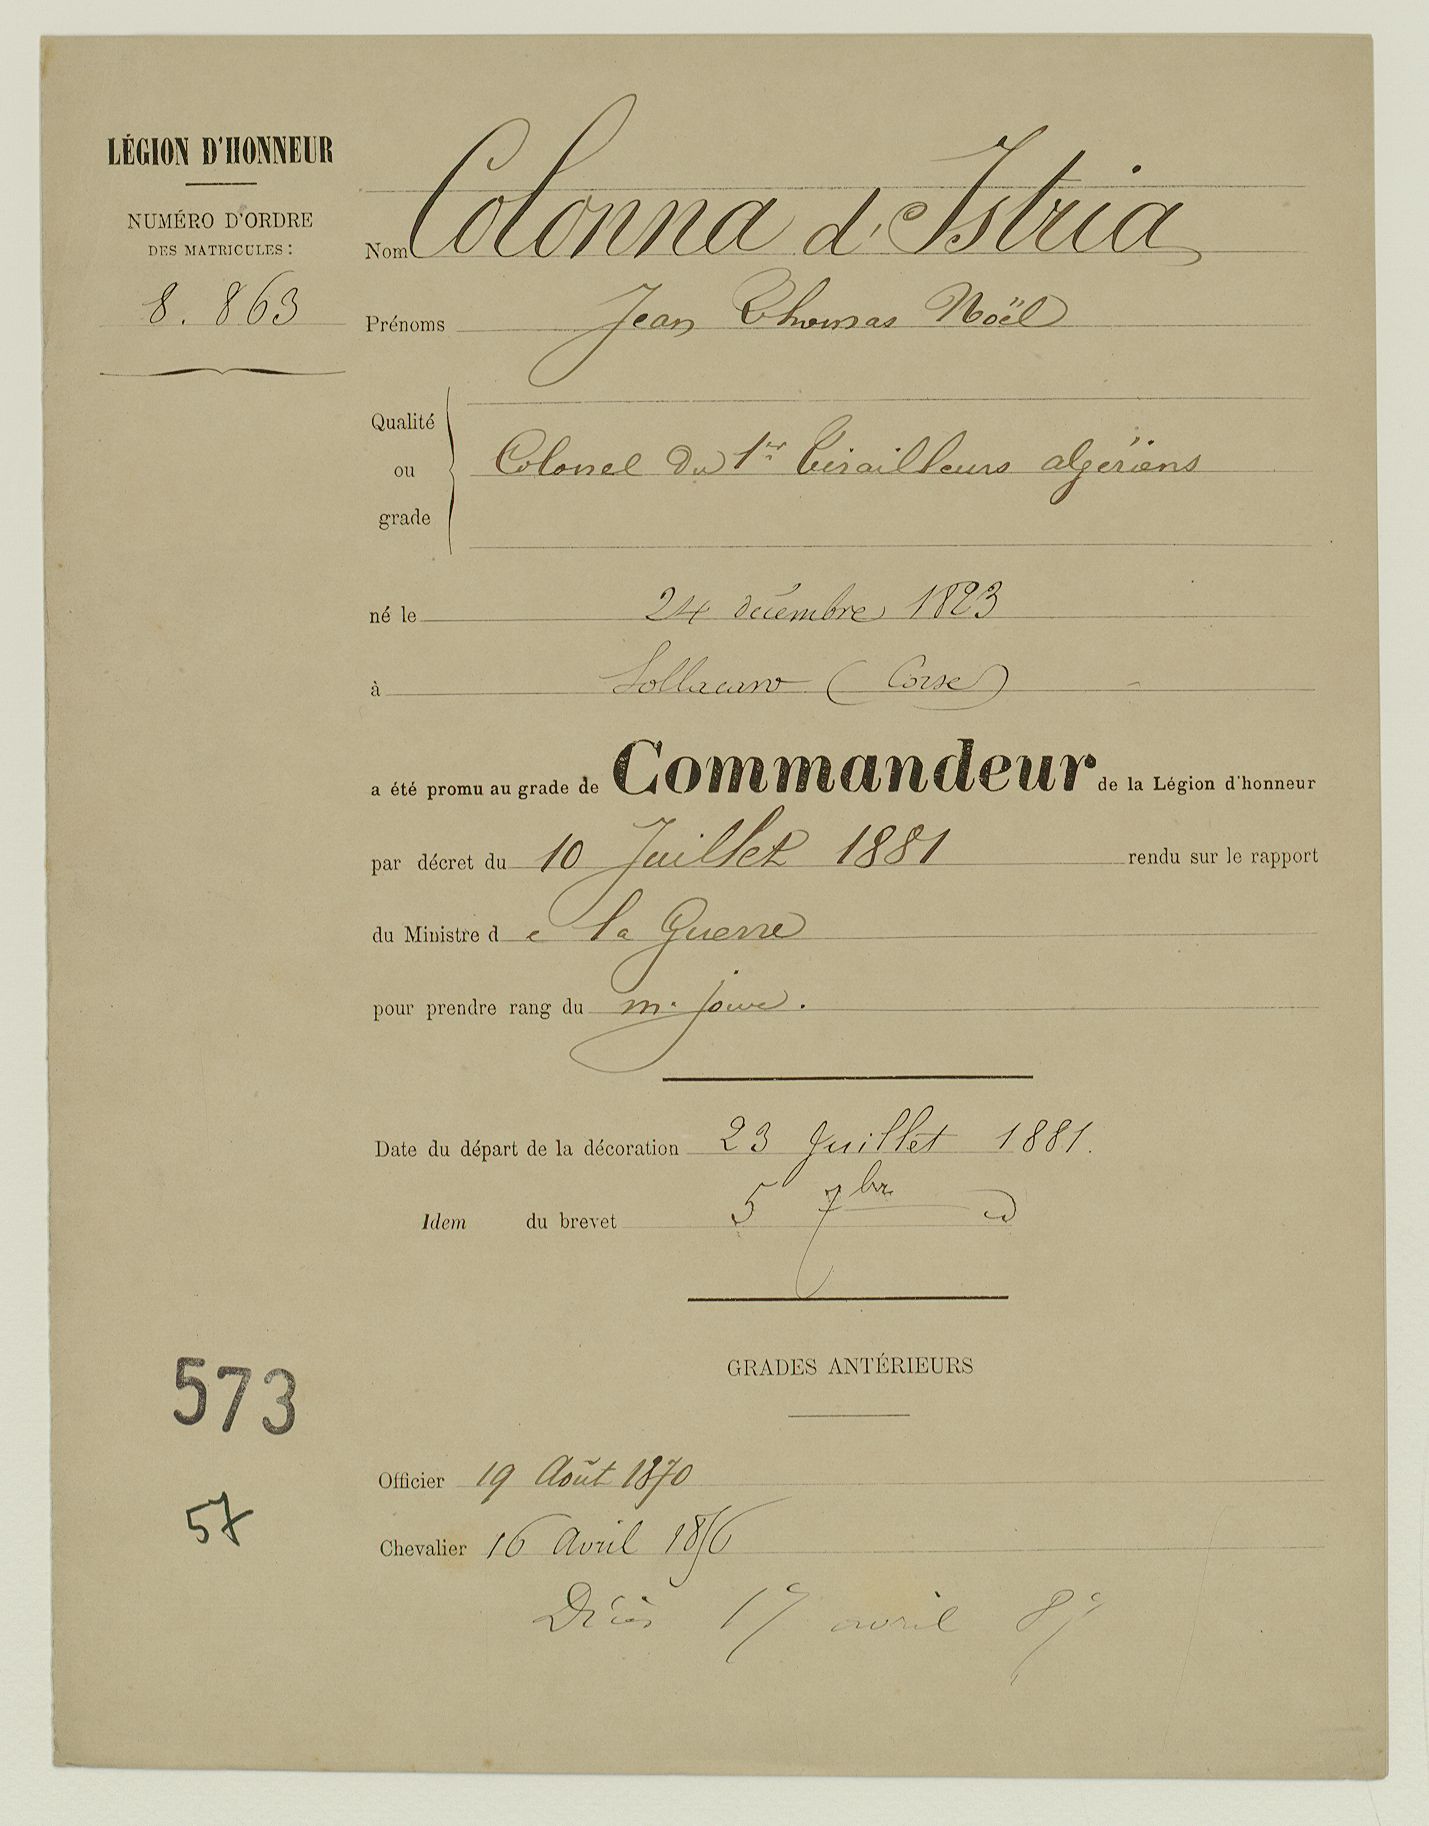 LÉGION D'HONNEUR
NUMÉRO D'ORDRE
DES MATRICULES:
8.863
Nom Colonna d'Istria
Prénoms Jean Thomas Noël
Qualité
ou
grade
Colonel du 1er tirailleurs algériens
né le 24 décembre 1823
à Sollacaro (Corse)
a été promu au grade de Commandeur de la Légion d'honneur
par décret du 10 Juillet 1881 rendu sur le rapport
du Ministre de la Guerre
pour prendre rang du m. jour.
Date du départ de la décoration 23 Juillet 1881.
Idem du brevet 5 7bre d
GRADES ANTÉRIEURS
573
Officier 19 Août 1870
57
Chevalier 16 Avril 1856
Décès 17 avril 87